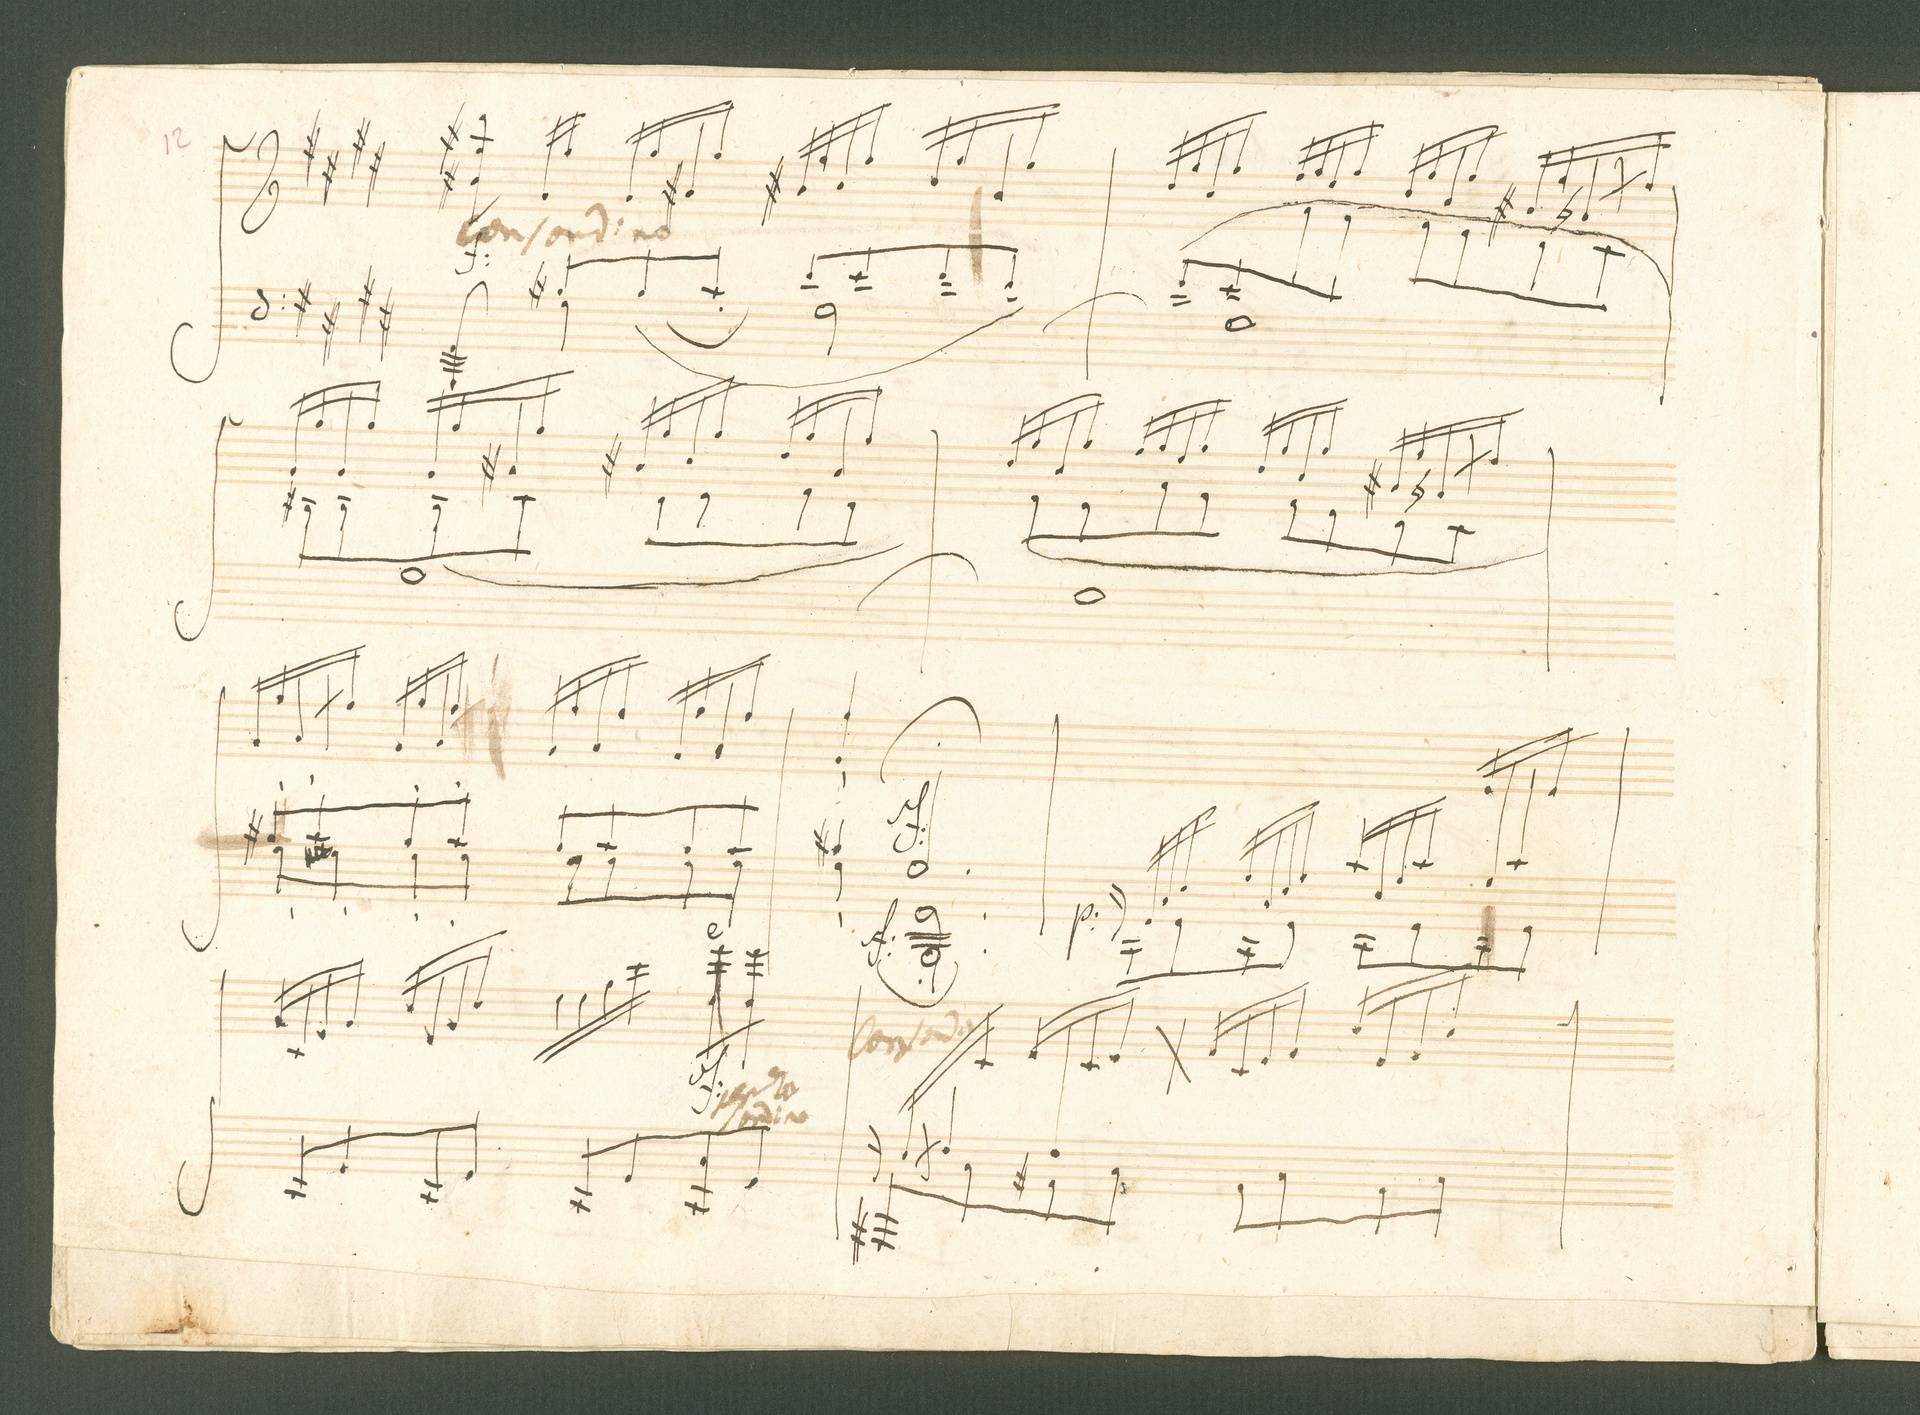 12
Consordino
sf:
sf:
p:
sf:
e
Consordo
sf:
senza
sordino